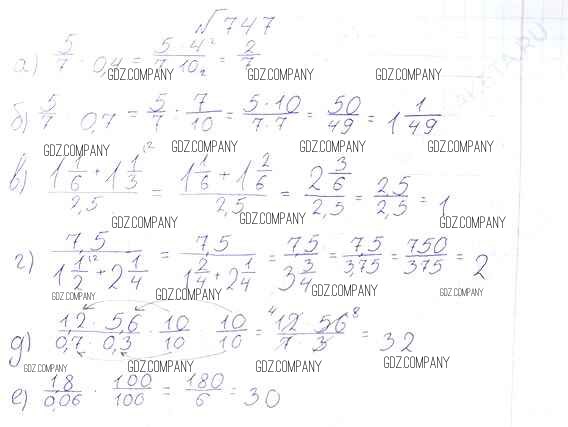 √747
а) 5/7 · 0,4 = 5·4²/7·10₂ = 2/7
GDZ.COMPANY GDZ.COMPANY GDZ.COMPANY
б) 5/7 : 0,7 = 5/7 : 7/10 = 5·10/7·7 = 50/49 = 1 1/49
GDZ.COMPANY GDZ.COMPANY GDZ.COMPANY
в) 1 1/6 + 1 1/3 ⁽² / 2,5 = 1 1/6 + 1 2/6 / 2,5 = 2 3/6 / 2,5 = 2,5/2,5 = 1
GDZ.COMPANY GDZ.COMPANY GDZ.COMPANY
г) 7,5 / 1 1/2 ⁽² + 2 1/4 = 7,5 / 1 2/4 + 2 1/4 = 7,5 / 3 3/4 = 7,5/3,75 = 750/375 = 2
GDZ.COMPANY GDZ.COMPANY GDZ.COMPANY GDZ.COMPANY
д) 1,2 · 5,6 / 0,7 · 0,3 · 10/10 · 10/10 = ⁴12 · 56⁸ / 7 · 3 = 32
GDZ.COMPANY GDZ.COMPANY GDZ.COMPANY GDZ.COMPANY
е) 1,8/0,06 · 100/100 = 180/6 = 30
GDZ.COMPANY GDZ.COMPANY